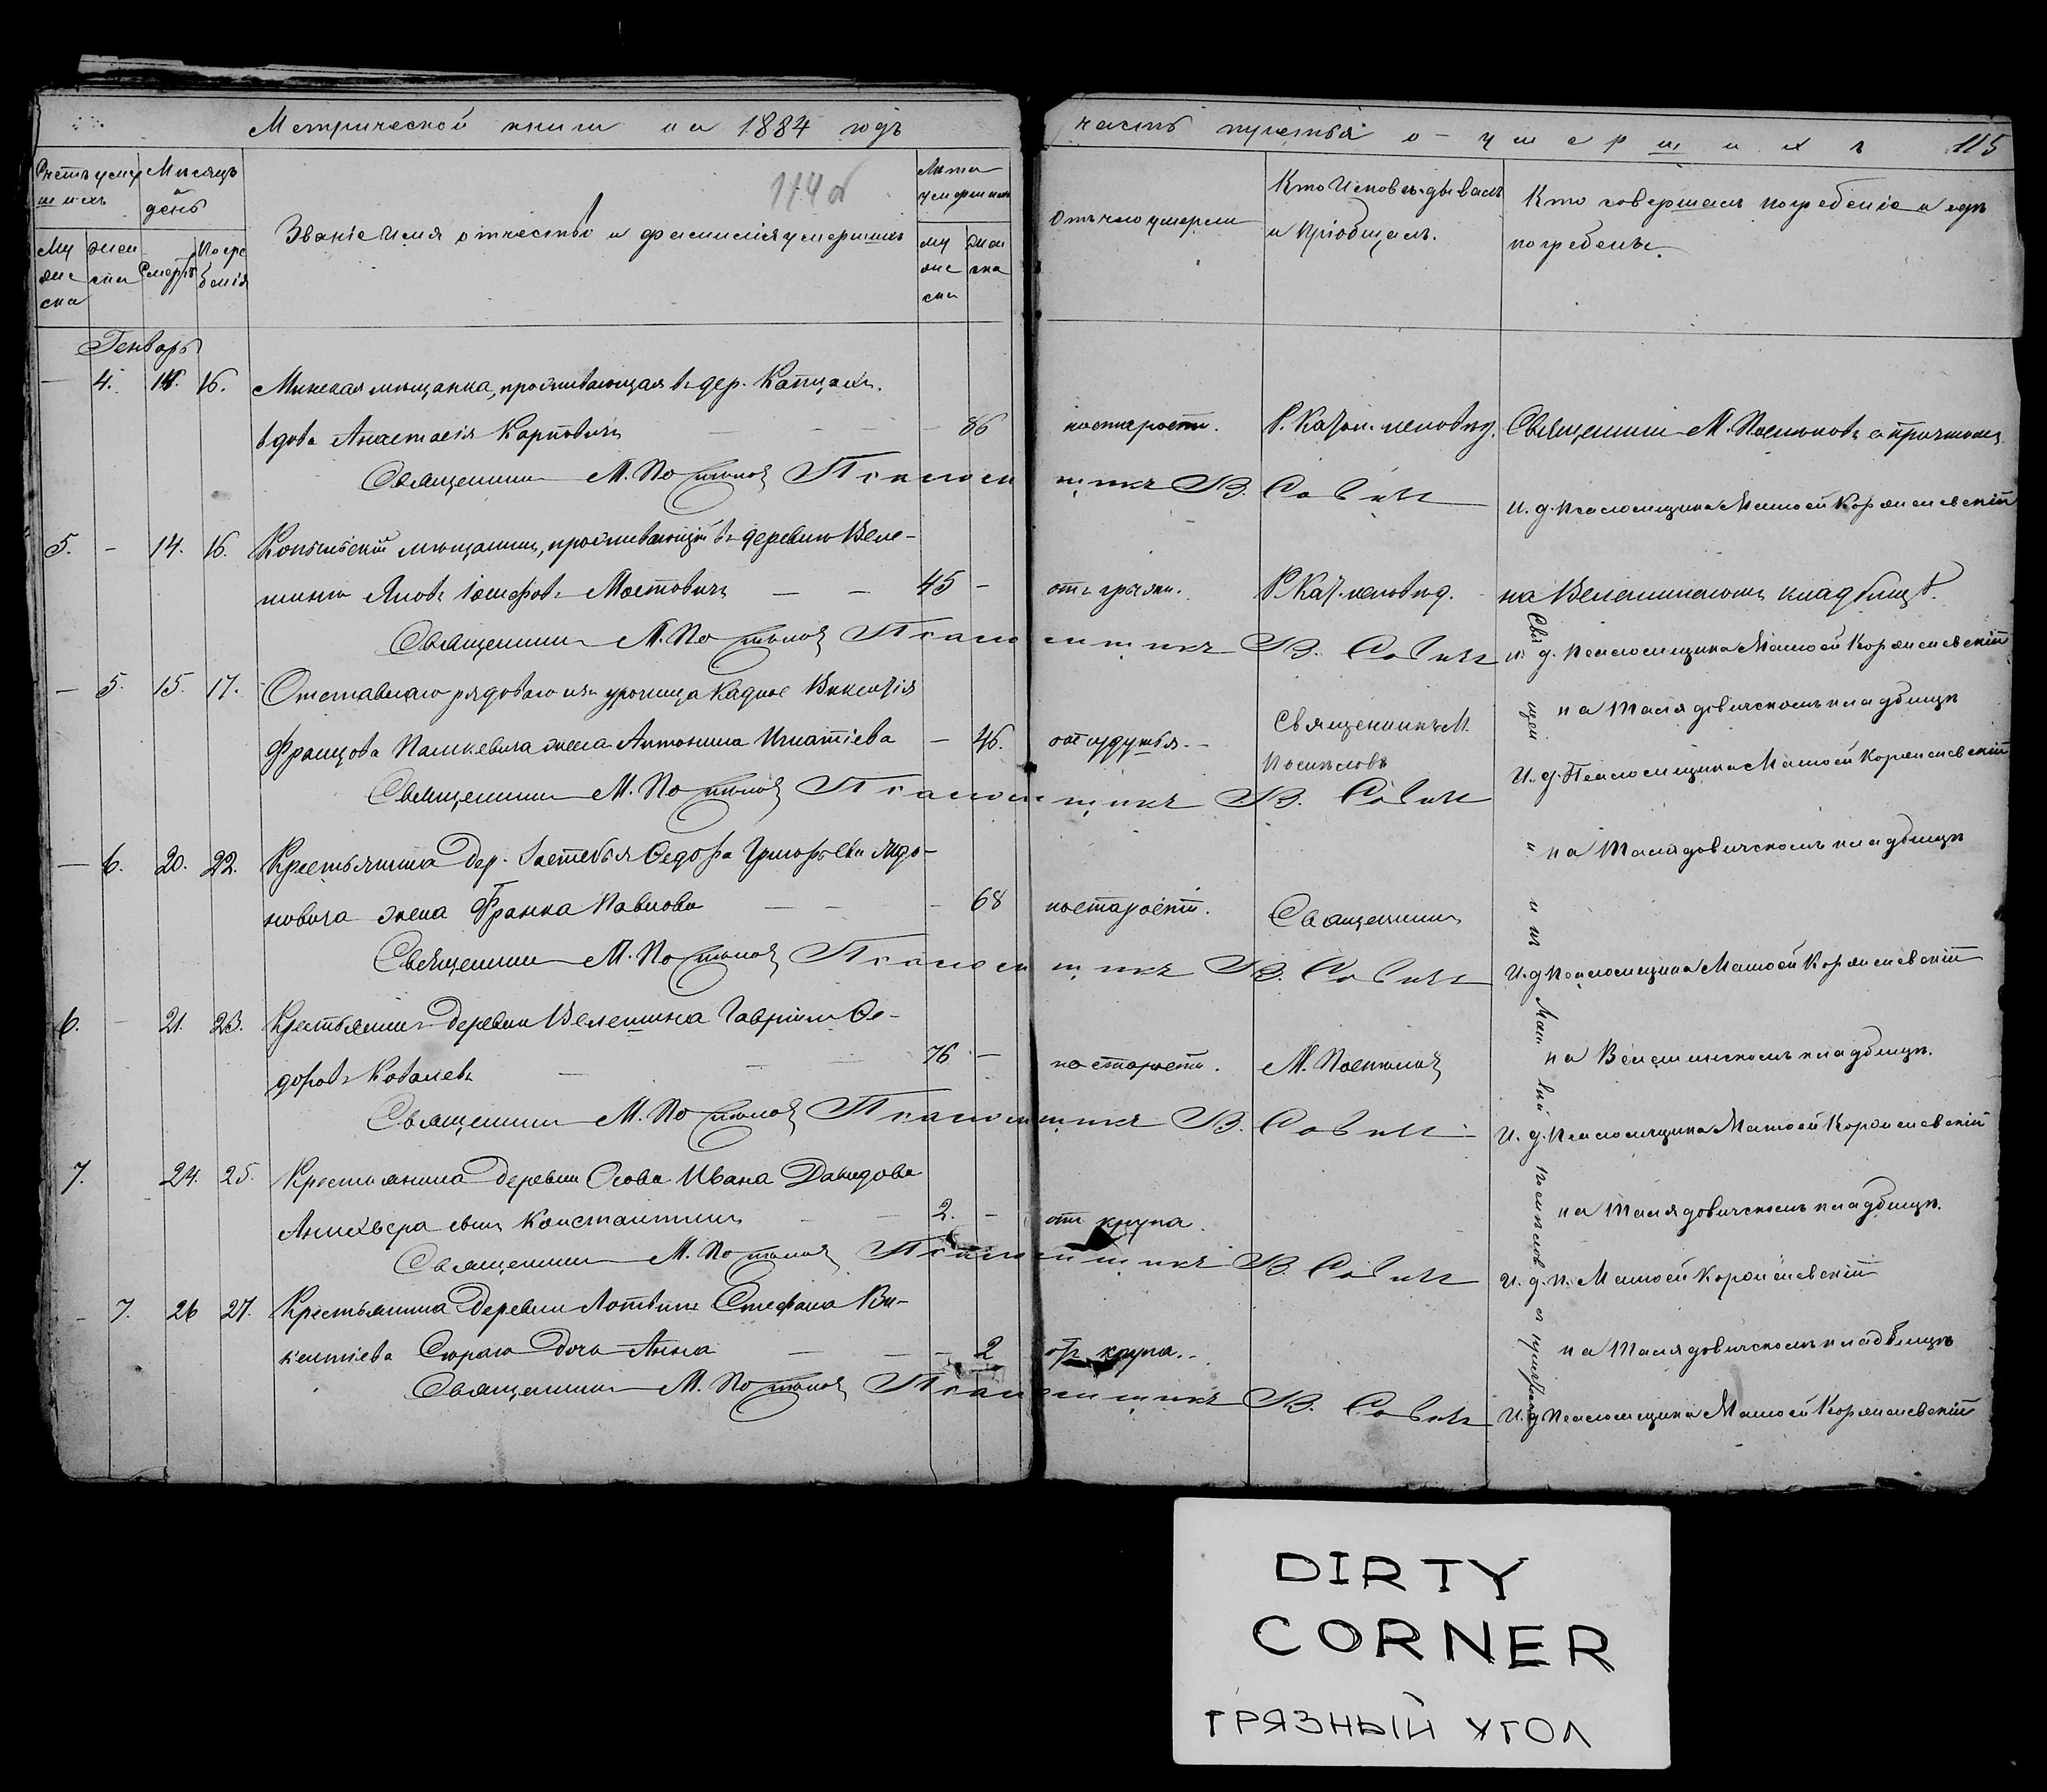 Метрической книги на 1884 годъ
часть третья о умершихъ 115
114об
Счетъ умершихъ
Мѣсяцъ и день
Званіе имя отчество и фамилія умершихъ
Лѣта умершихъ
Отъ чего умерли
Кто исповѣдывалъ и пріобщалъ.
Кто совершалъ погребеніе и гдѣ погребенъ.
Мужеска
женска
Смерти
Погребенія
мужеска
женска
Генварь
— 4. 16. Минская мѣщанка, проживающая въ дер.
вдова Анастасія Карповичъ — — — 86 по старости. Р. Катол. исповѣд. Священникъ М. Поспѣловъ с причтомъ
Священникъ М. Поспѣловъ Псаломщикъ В. Савичъ И. д. Псаломщика Матвей
5. — 14. 16. Копыльскій мѣщанинъ, проживающій въ деревнѣ Веле-
шинѣ Яковъ Іосифовъ Мостовичъ — — 45 — отъ грыжи. Р. Кат. исповѣд. на Велешинскомъ кладбищѣ.
Священникъ М. Поспѣловъ Псаломщикъ В. Савичъ И. д. Псаломщика Матвей
— 5. 15. 17. Отставнаго рядоваго изъ урочища Викентія
Францова Пашкевича жена Антонина Игнатіева — 46. от удушья. — Священникъ М. Поспѣловъ на кладбищѣ
Священникъ М. Поспѣловъ Псаломщикъ В. Савичъ И. д. Псаломщика Матвей
— 6. 20. 22. Крестьянина дер. Застебья Ѳедора Григорьева
жена Франка Павлова — — — 68 по старости. Священникъ на кладбищѣ
Священникъ М. Поспѣловъ Псаломщикъ В. Савичъ И. д. Псаломщика Матвей
6. — 21. 23. Крестьянинъ деревни Велешина Гавріилъ Ѳе-
доровъ Ковалевъ — — — 76 — по старости. М. Поспѣловъ на Велешинскомъ кладбищѣ.
Священникъ М. Поспѣловъ Псаломщикъ В. Савичъ И. д. Псаломщика Матвей
7. 24. 25. Крестьянина деревни Осова Ивана Давидова
сынъ Константинъ — — 2. — отъ крупа. на кладбищѣ.
Священникъ М. Поспѣловъ Псаломщикъ В. Савичъ И. д. п. Матвей
— 7. 26 27. Крестьянина деревни Лотвинъ Стефана Ви-
кентіева дочь Анна — — — 2 отъ крупа. — на кладбищѣ
Священникъ М. Поспѣловъ Псаломщикъ В. Савичъ И. д. Псаломщика Матвей
Священникъ Матвій Поспѣловъ с причтомъ
DIRTY
CORNER
ГРЯЗНЫЙ УГОЛ